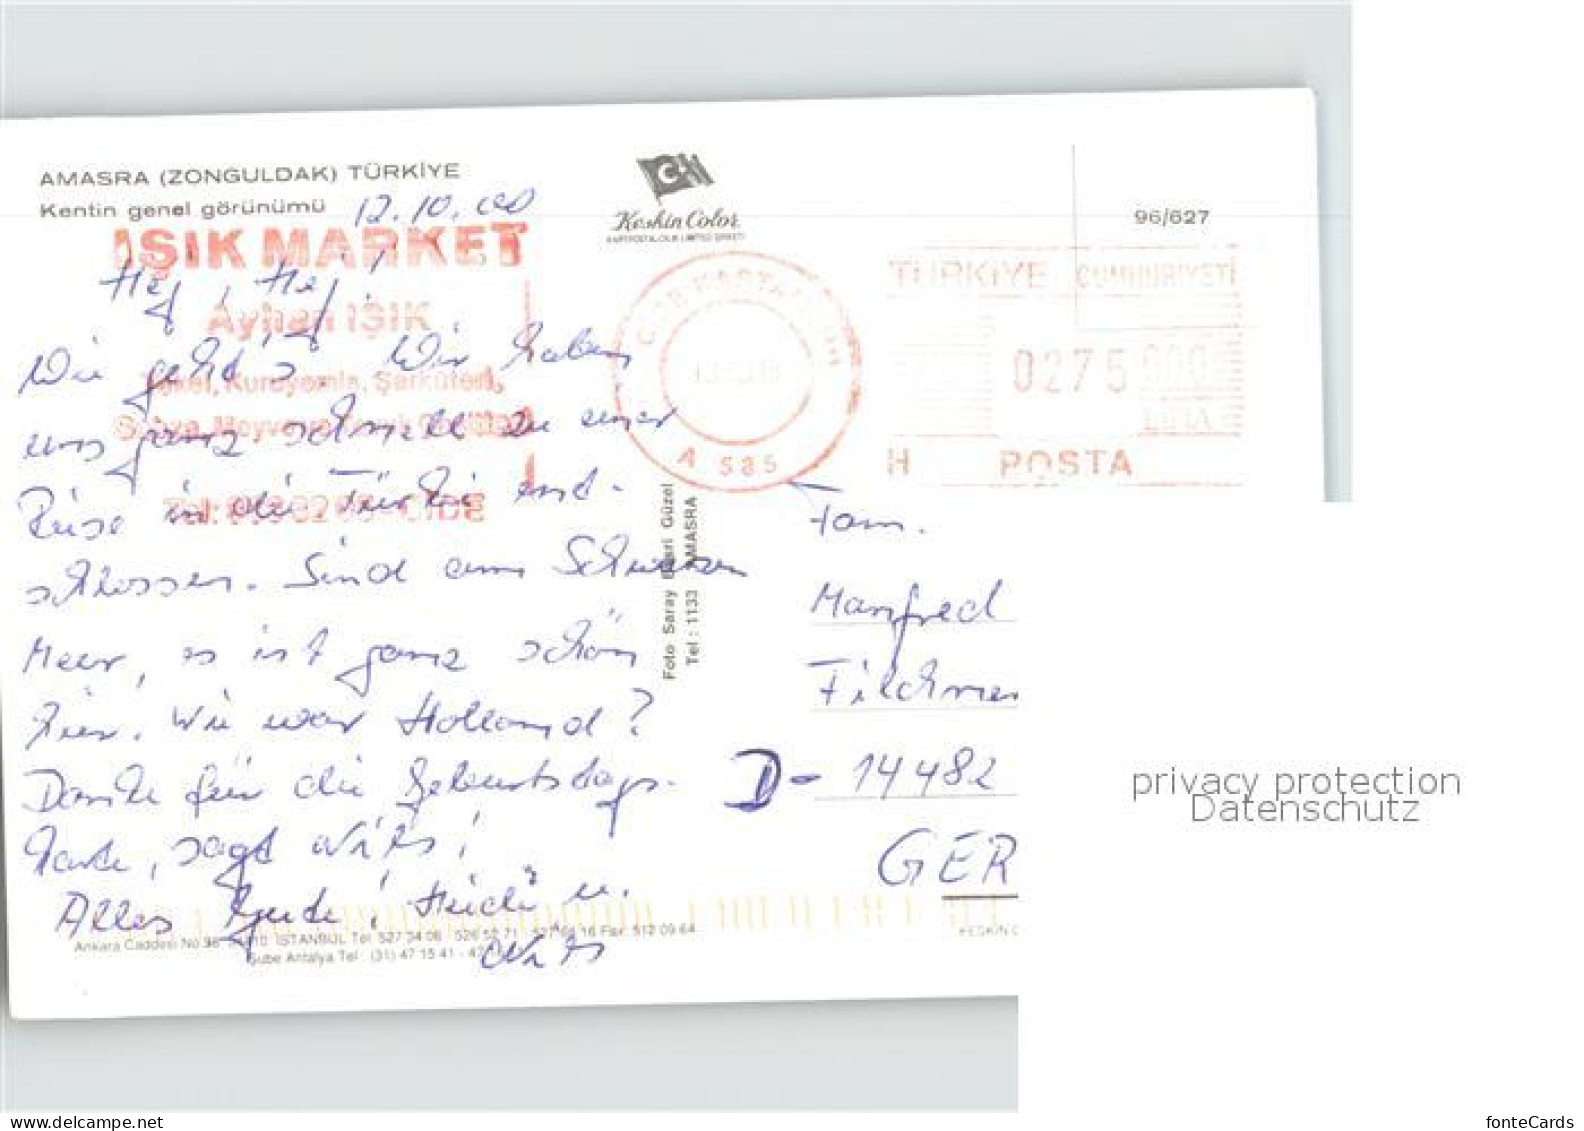 AMASRA (ZONGULDAK) TÜRKİYE
Kentin genel görünümü
12.10.00
Keskin Color
KARTPOSTALCILIK LIMITED ŞİRKETİ
96/627
IŞIK MARKET
Ayhan IŞIK
Tekel, Kuruyemiş, Şarküteri,
Sebze, Meyve
CİDE
CİDE-KASTAMONU
A 585
TÜRKİYE CUMHURİYETİ
0275000
LİRA
H POSTA
Hej, Hej!
Wie geht's? Wir haben
uns ganz schnell zu einer
Reise in die Türkei ent-
schlossen. Sind am Schwarzen
Meer, es ist ganz schön
hier. Wie war Holland?
Danke für die Geburtstags-
karte, sagt
Alles Gute, Heidi u.
Foto Saray Güzel
Tel : 1133 AMASRA
Fam.
Manfred
D- 14482
GER
Ankara Caddesi No 98 İSTANBUL Tel 527 34 06 526 52 71 Fax 512 09 64
Şube Antalya Tel (31) 47 15 41
KESKİN C
privacy protection
Datenschutz
www.delcampe.net
fonteCards